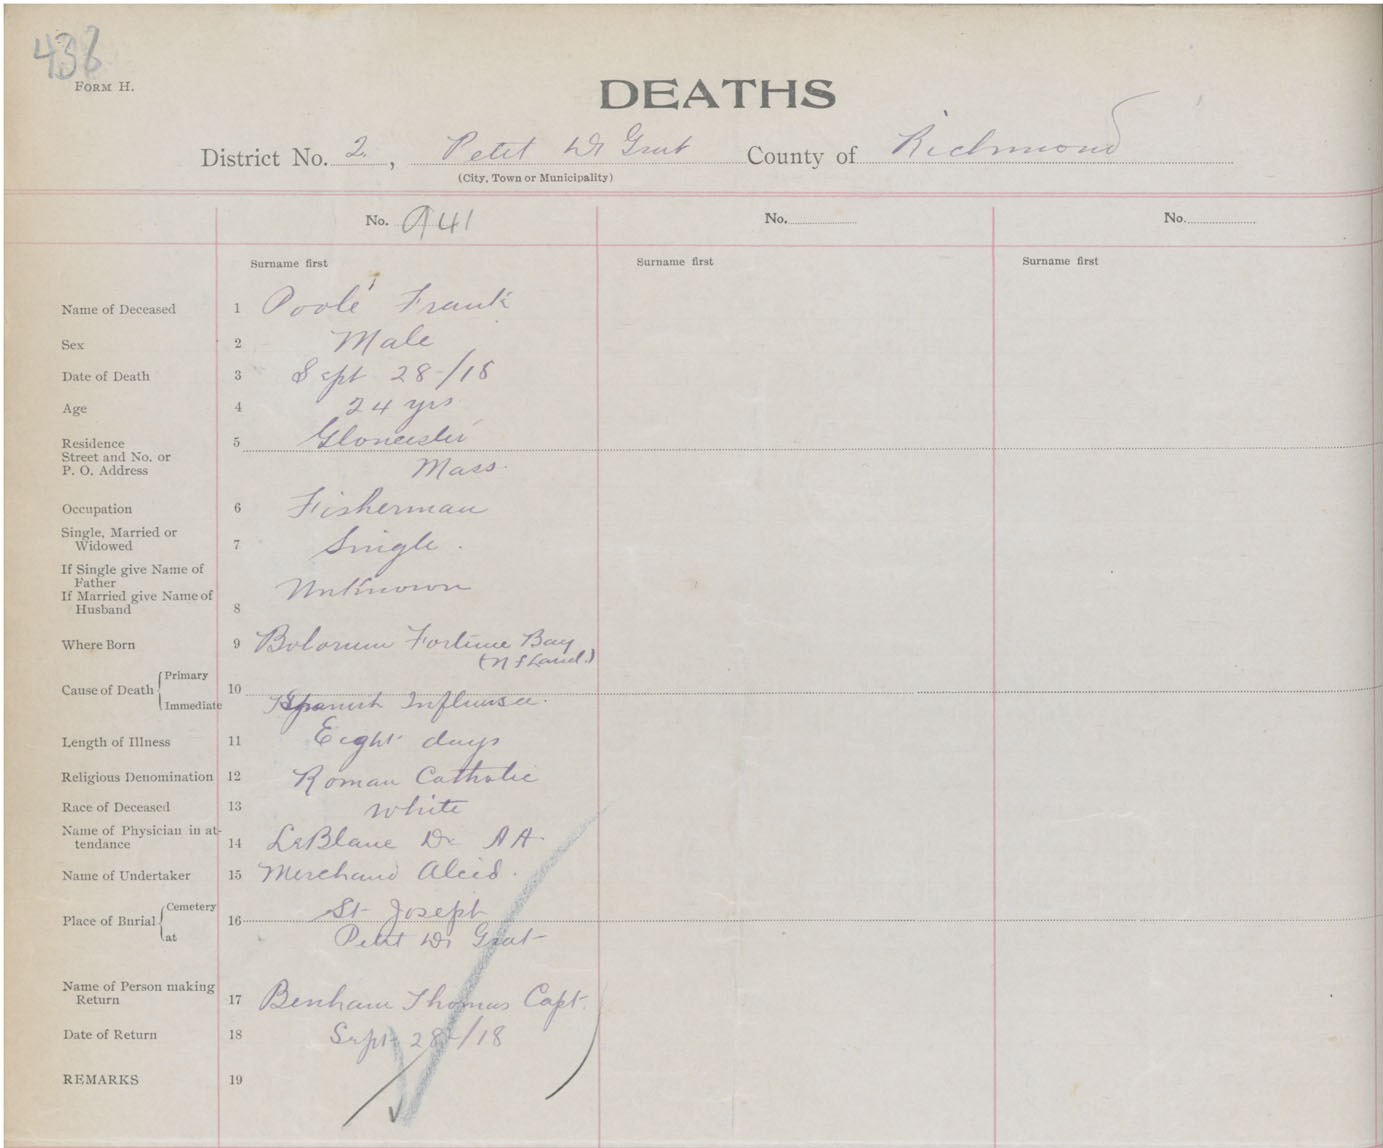 436
FORM H.
DEATHS
District No. 2, Petit De Grat County of Richmond
(City, Town or Municipality)
No. 941 No. No.
Surname first Surname first Surname first
Name of Deceased 1 Poole Frank
Sex 2 Male
Date of Death 3 Sept 28-/18
Age 4 24 yrs
Residence 5 Gloucester
Street and No. or
P. O. Address Mass.
Occupation 6 Fisherman
Single, Married or
Widowed 7 Single.
If Single give Name of
Father
If Married give Name of Unknown
Husband 8
Where Born 9 Bolorum Fortune Bay
(Nfland.)
Cause of Death Primary 10
Immediate Spanish Influensa.
Length of Illness 11 Eight days
Religious Denomination 12 Roman Catholic
Race of Deceased 13 White
Name of Physician in at-
tendance 14 LeBlanc Dr AA.
Name of Undertaker 15 Merchand Alcid.
Place of Burial Cemetery 16 St Joseph
at Petit De Grat
Name of Person making
Return 17 Benham Thomas Capt.
Date of Return 18 Sept 28-/18
REMARKS 19